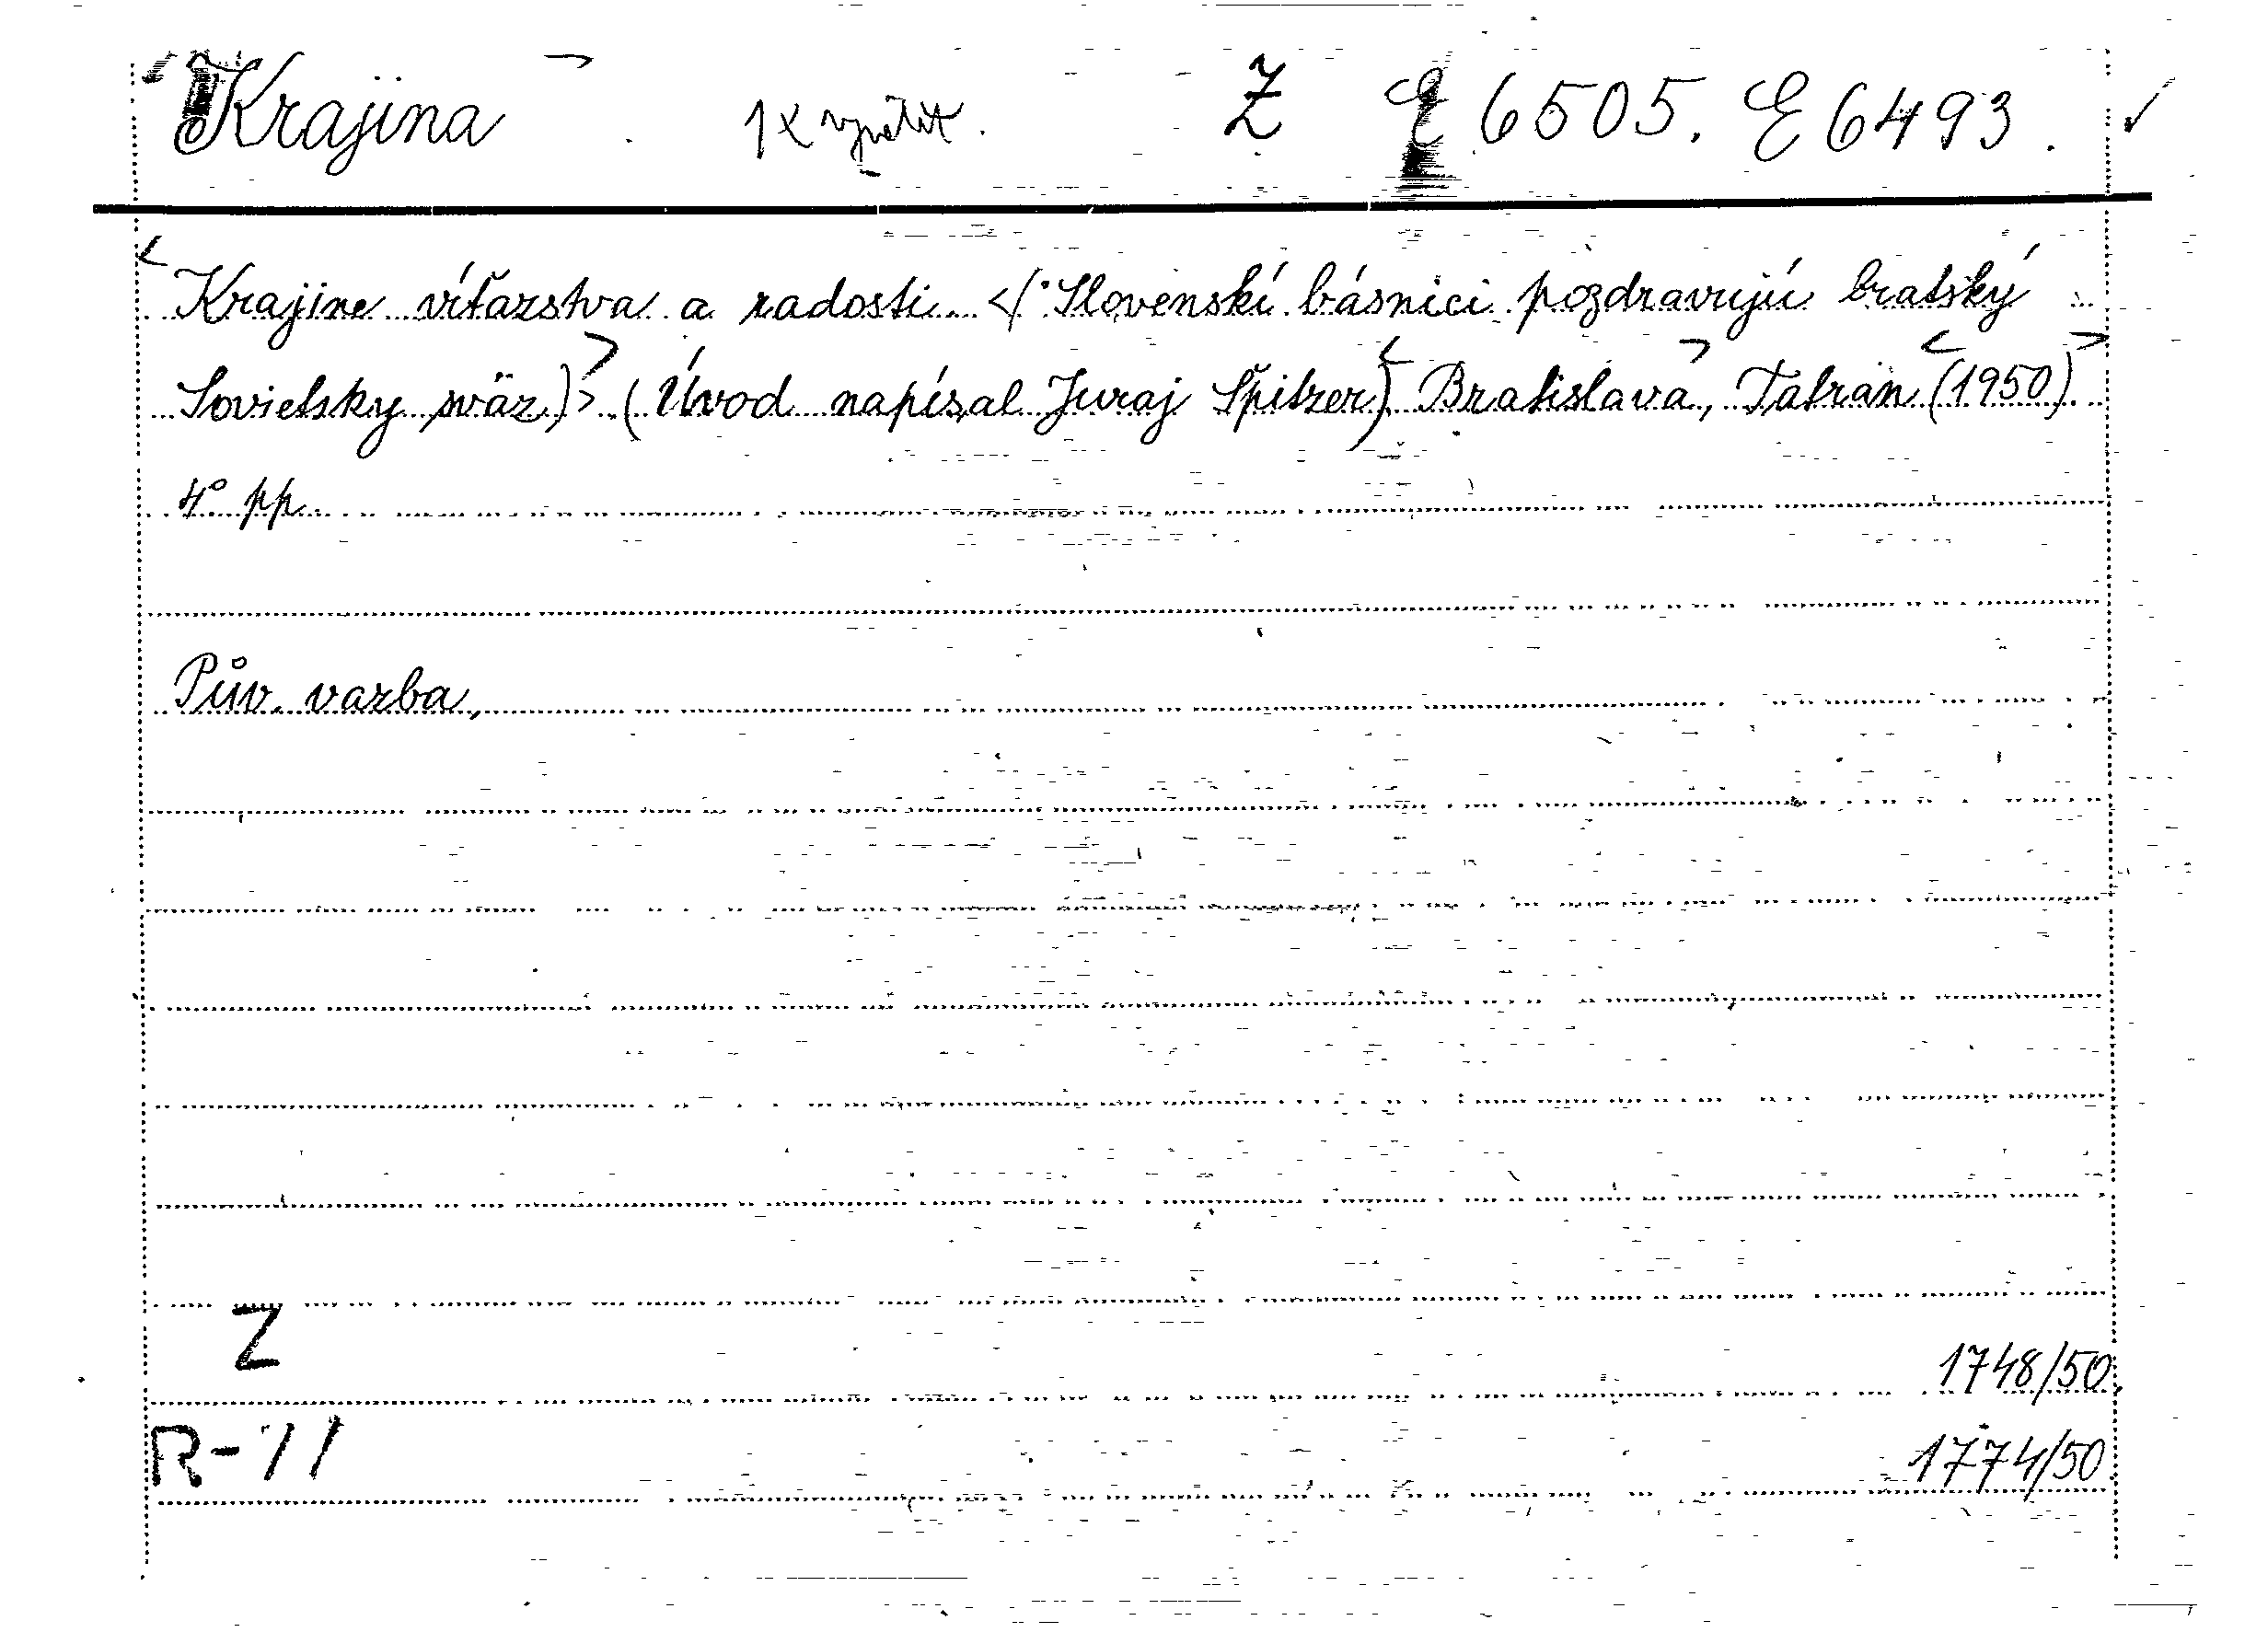 Krajina 1x Z E 6505. E 6493.
Krajine víťazstva a radosti. (Slovenskí básnici pozdravujú bratský
Sovietsky sväz) (Úvod napísal Juraj Špitzer) Bratislava, Tatran (1950).
4° pp.
Pův. vazba,
Z
1748/50,
R-71
1774/50